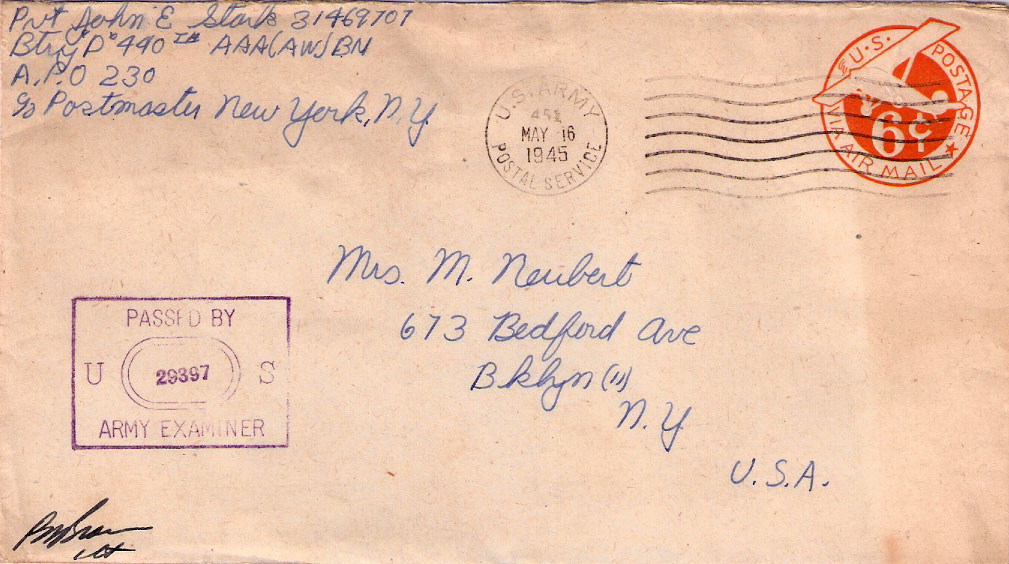 Pvt John E Stark 31469707
Btry "D" 440TH AAA(AW)BN
A.P.O 230
c/o Postmaster New York, N.Y
U.S. ARMY
MAY 16
1945
POSTAL SERVICE
U.S. POSTAGE
6¢
VIA AIR MAIL
Mrs. M. Neubert
673 Bedford Ave
Bklyn (11)
N.Y
U.S.A.
PASSED BY
U 29397 S
ARMY EXAMINER